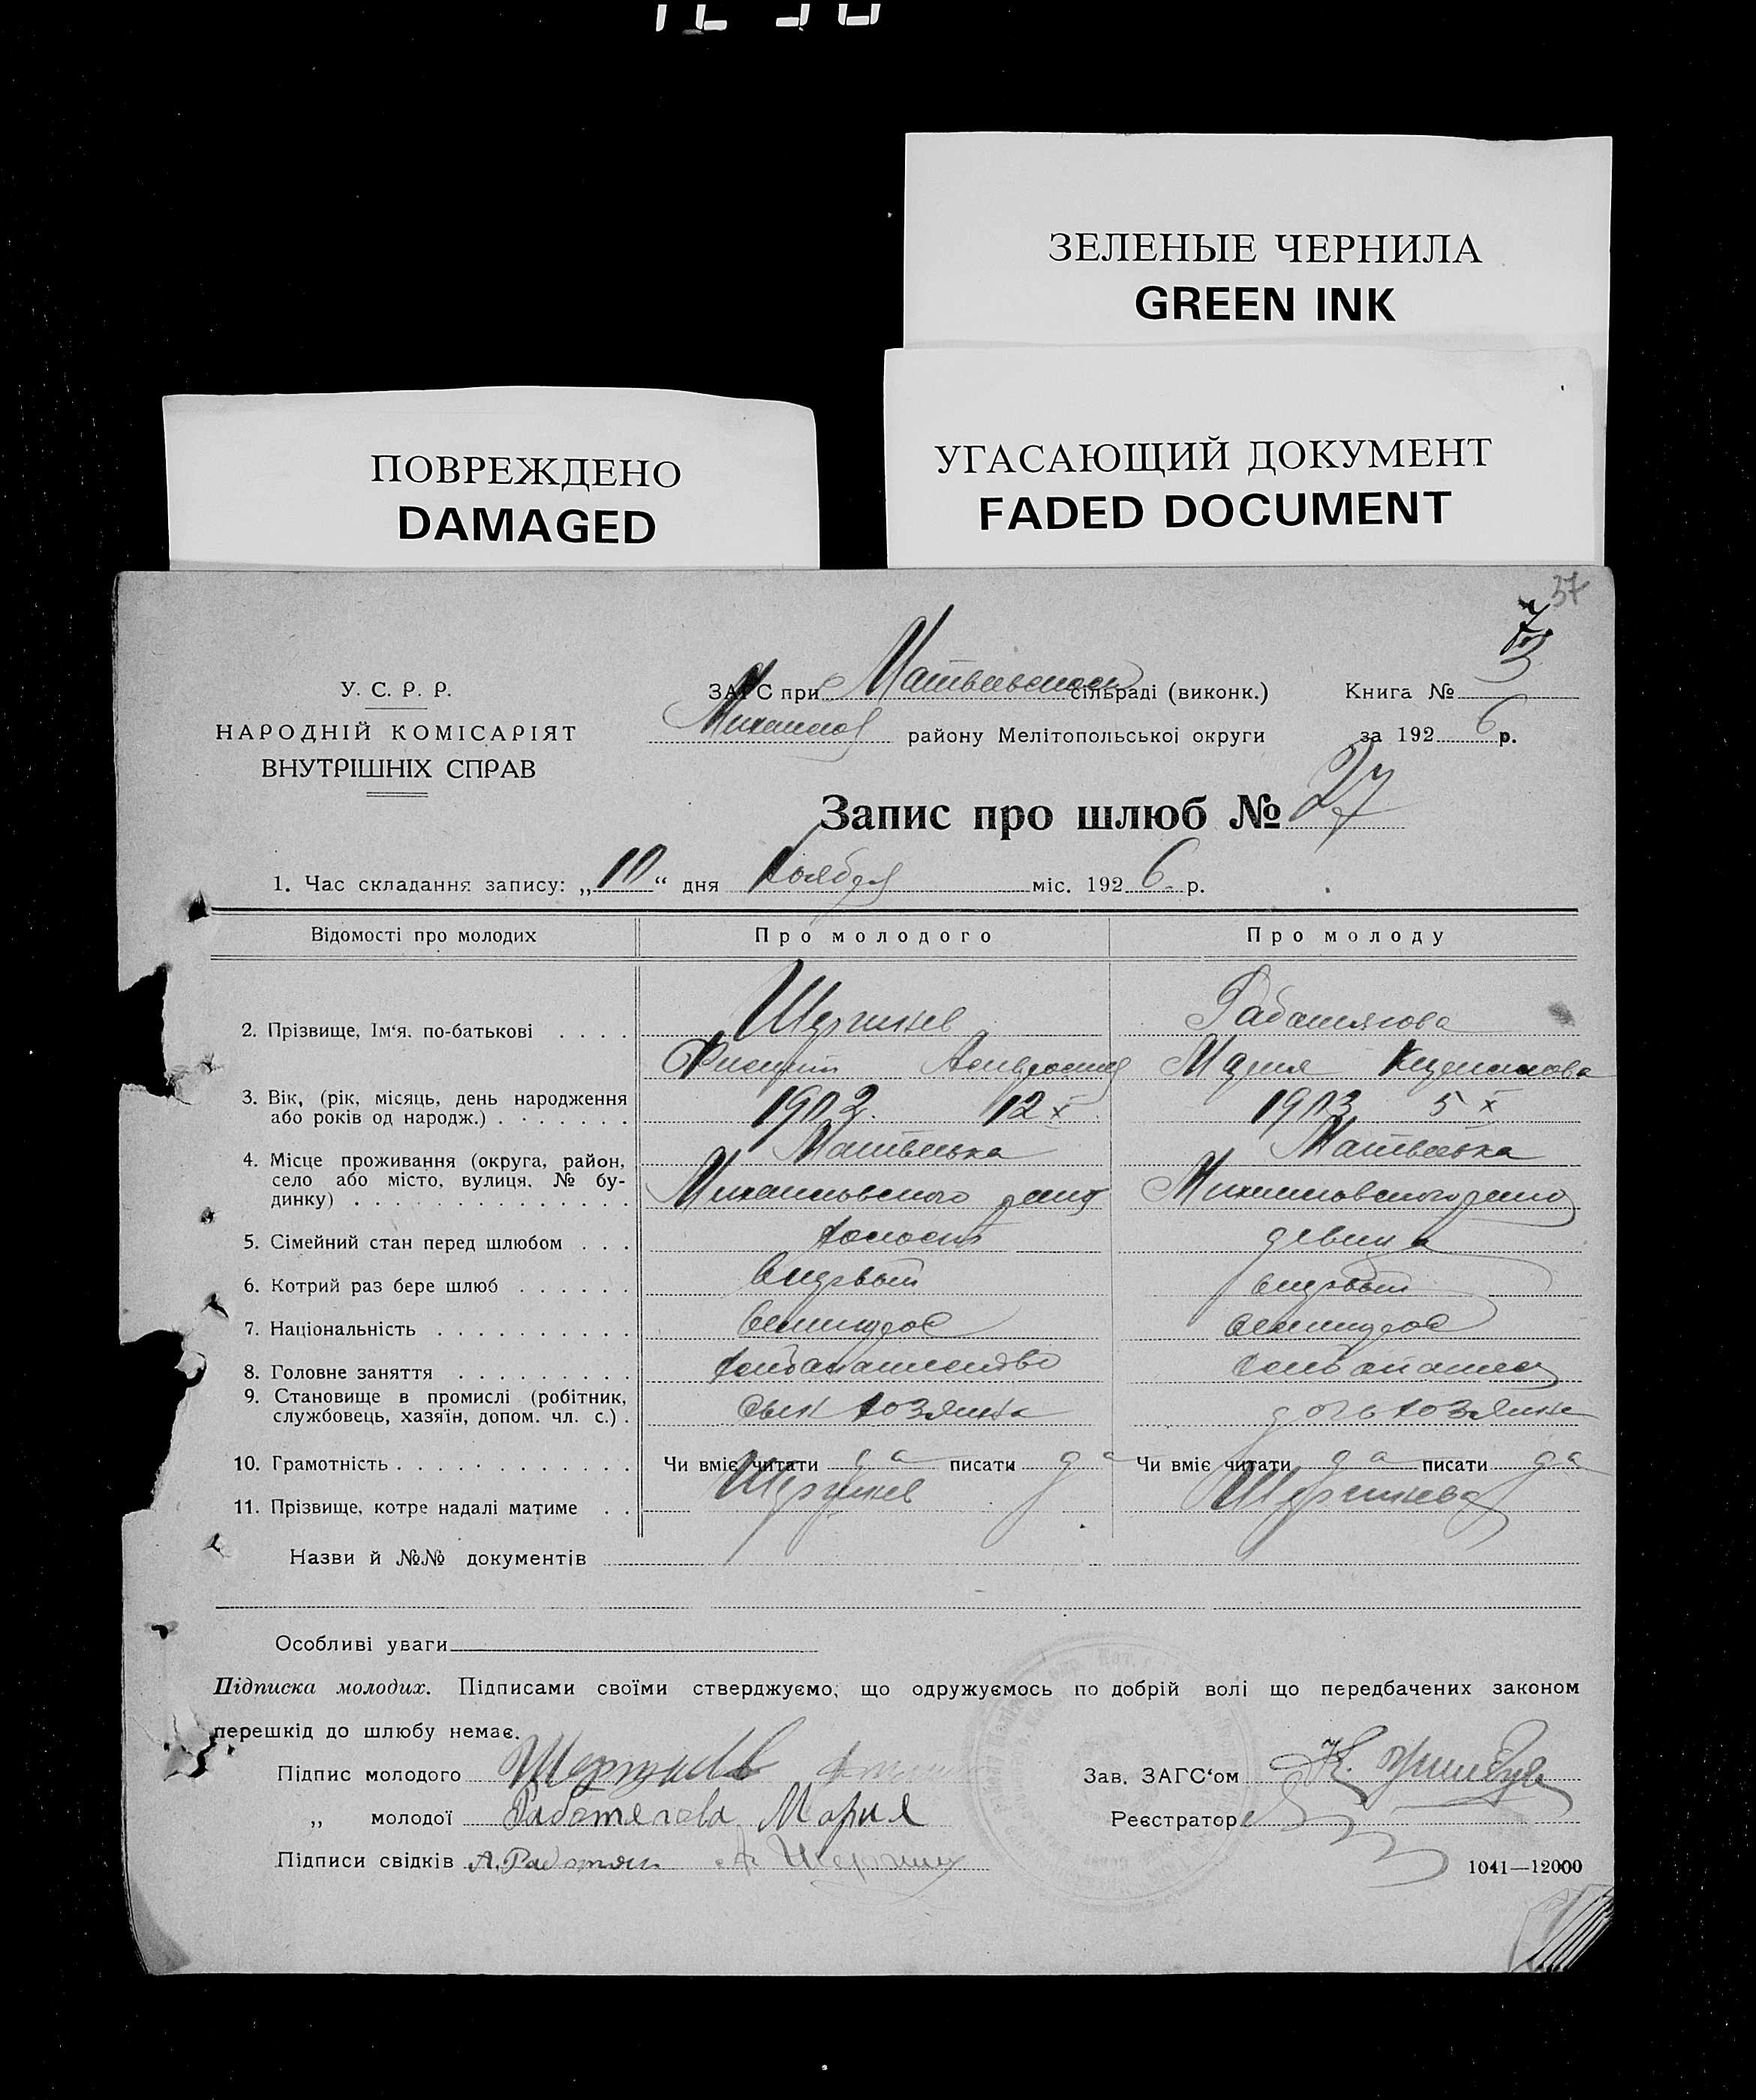 ЗЕЛЕНЫЕ ЧЕРНИЛА
GREEN INK
УГАСАЮЩИЙ ДОКУМЕНТ
FADED DOCUMENT
ПОВРЕЖДЕНО
DAMAGED
37
У. С. Р. Р.
НАРОДНІЙ КОМІСАРІЯТ
ВНУТРІШНІХ СПРАВ
ЗАГС при сільраді (виконк.)
Книга №
району Мелітопольської округи
за 1926 р.
Запис про шлюб № 27
1. Час складання запису: „10“ дня Ноября міс. 1926 р.
Відомості про молодих Про молодого Про молоду
2. Прізвище, Ім'я. по-батькові
Мария
3. Вік, (рік, місяць, день народження 1902. 12 X 1903 5 X
або років од народж.)
4. Місце проживання (округа, район, Матвеевка Матвеевка
село або місто, вулиця, № бу-
динку) Михайловского Михайловского
5. Сімейний стан перед шлюбом холост девица
6. Котрий раз бере шлюб первый первый
7. Національність великорос великорос
8. Головне заняття хлебопашество
9. Становище в промислі (робітник, сын хозяина дочь хозяина
службовець, хазяїн, допом. чл. с.)
10. Грамотність Чи вміє читати да писати да Чи вміє читати да писати да
11. Прізвище, котре надалі матиме
Назви й №№ документів
Особливі уваги
Підписка молодих. Підписами своїми стверджуємо, що одружуємось по добрій волі що передбачених законом
перешкід до шлюбу немає.
Підпис молодого
Зав. ЗАГС'ом
„ молодої Мария
Реєстратор
Підписи свідків
1041—12000